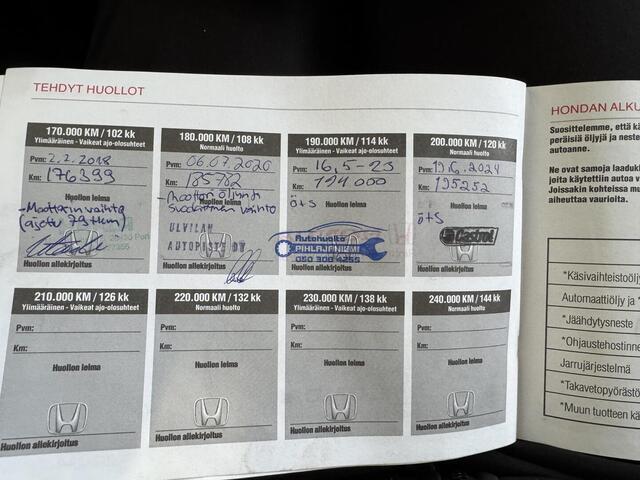 TEHDYT HUOLLOT
170.000 KM / 102 kk
Ylimääräinen - Vaikeat ajo-olosuhteet
Pvm: 2.2.2018
Km: 176399
Huollon leima
- Moottorin vaihto
(ajettu 79 tkm)
Huollon allekirjoitus
180.000 KM / 108 kk
Normaali huolto
Pvm: 06.07.2020
Km: 185782
- Moottori öljynti
Suodattimen vaihto
ULVILAN
AUTOPISTE OY
Huollon allekirjoitus
190.000 KM / 114 kk
Ylimääräinen - Vaikeat ajo-olosuhteet
Pvm: 16.5-23
Km: 194000
Huollon leima
ö+s
Autohuolto
PIHLAJANIEMI
Huollon allekirjoitus
200.000 KM / 120 kk
Normaali huolto
Pvm: 19.6.2024
Km: 195252
Huollon leima
ö+s
Castrol
Huollon allekirjoitus
210.000 KM / 126 kk
Ylimääräinen - Vaikeat ajo-olosuhteet
Pvm:
Km:
Huollon leima
Huollon allekirjoitus
220.000 KM / 132 kk
Normaali huolto
Pvm:
Km:
Huollon leima
Huollon allekirjoitus
230.000 KM / 138 kk
Ylimääräinen - Vaikeat ajo-olosuhteet
Pvm:
Km:
Huollon leima
Huollon allekirjoitus
240.000 KM / 144 kk
Normaali huolto
Pvm:
Km:
Huollon leima
Huollon allekirjoitus
HONDAN ALKU
Suosittelemme, että kä
peräisiä öljyjä ja neste
autoanne.
Ne ovat samoja laadukk
joita käytettiin autoa v
Joissakin kohteissa mu
aiheuttaa vaurioita.
*Käsivaihteistoöljy
Automaattiöljy ja
*Jäähdytysneste
*Ohjaustehostinne
Jarrujärjestelmä
*Takavetopyörästö
*Muun tuotteen kä